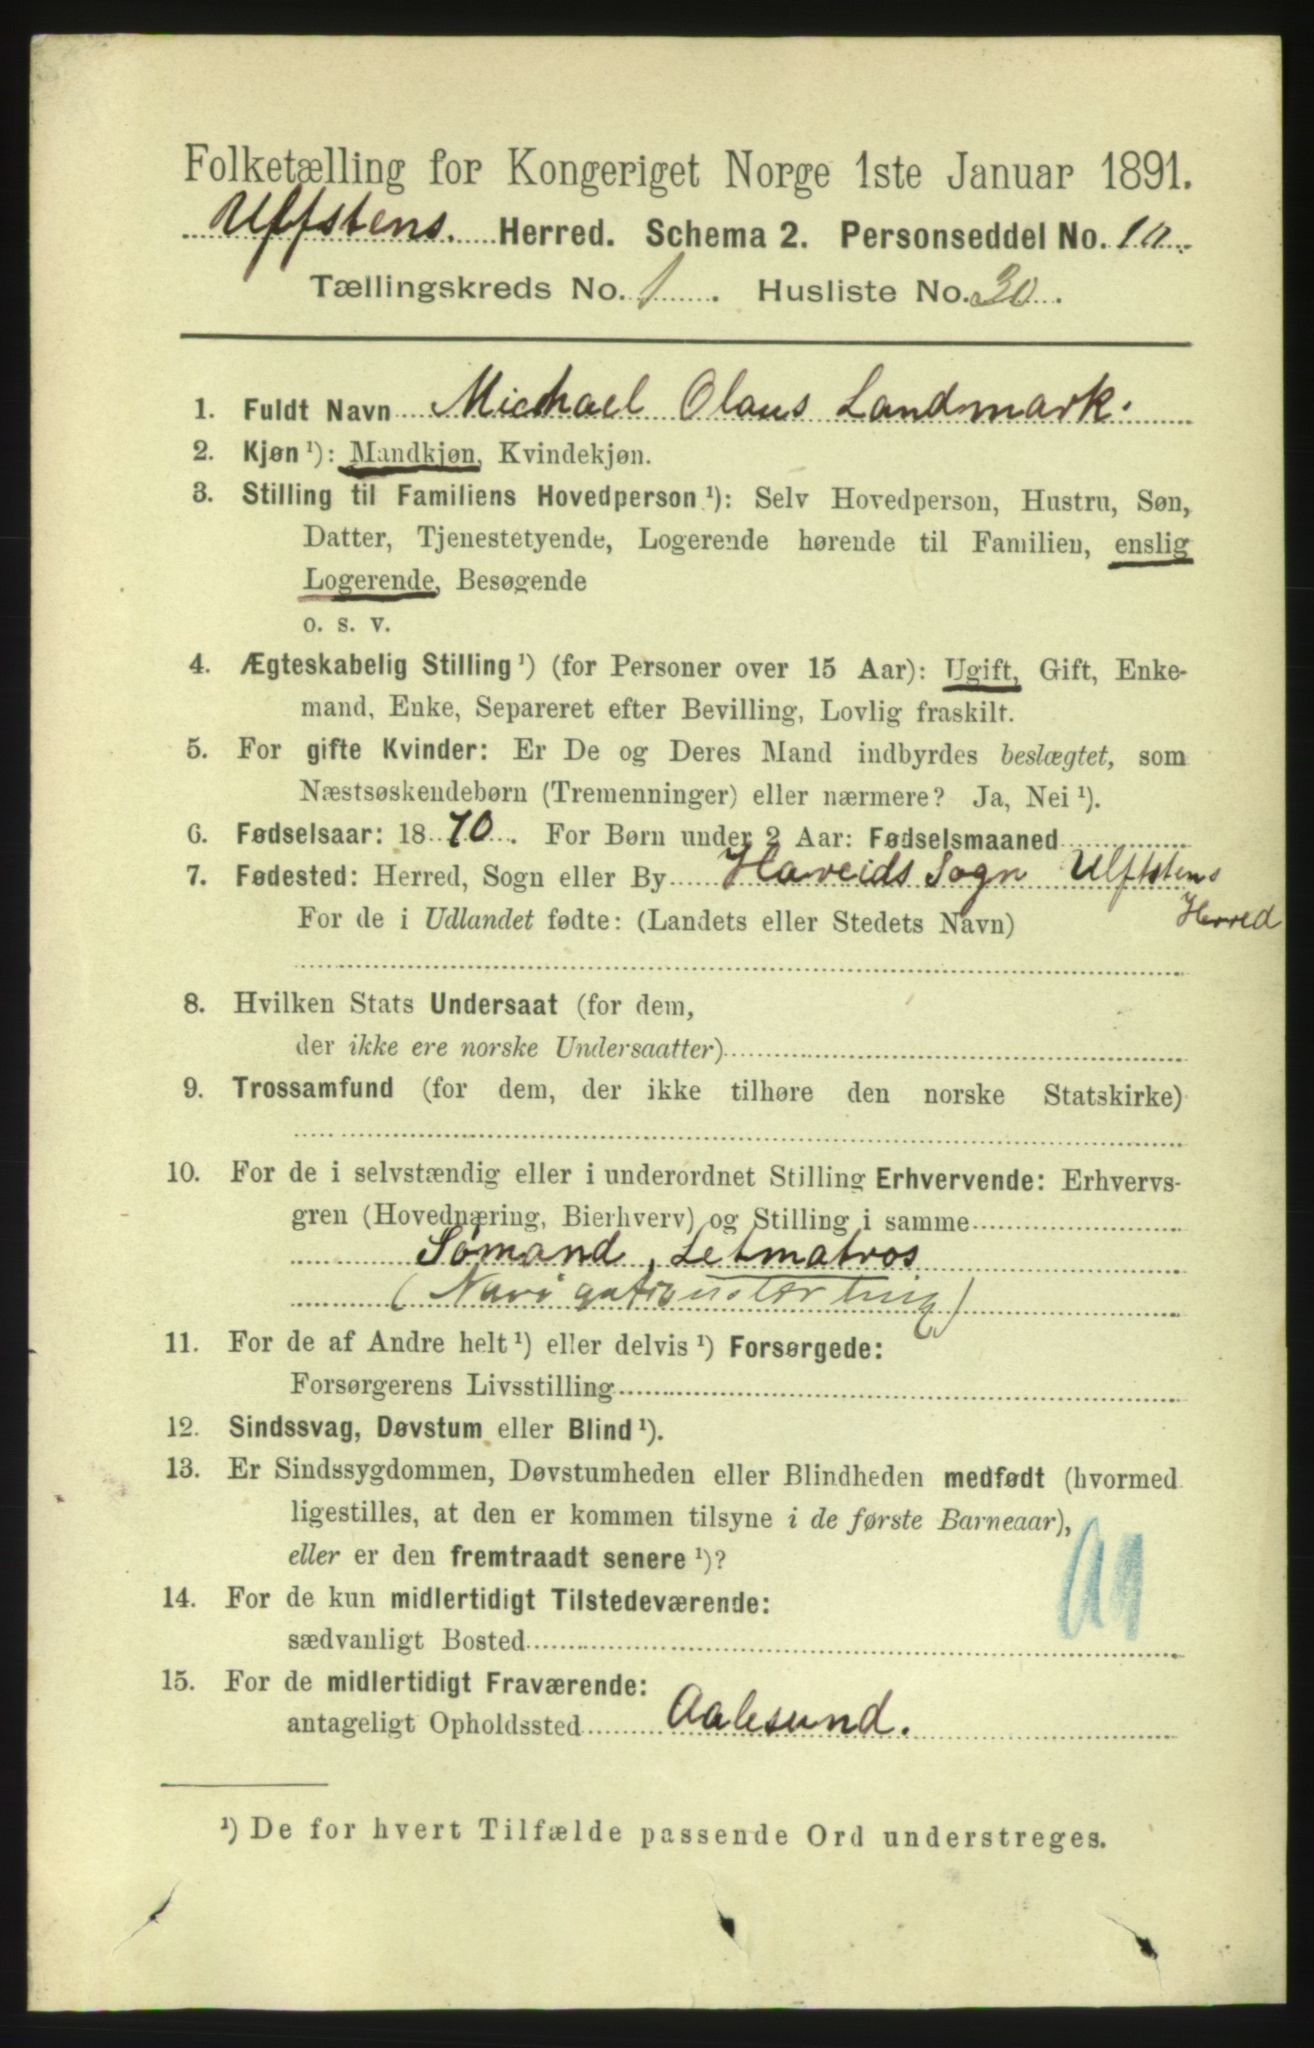 Folketælling for Kongeriget Norge 1ste Januar 1891.
Ulfstens. Herred. Schema 2. Personseddel No. 10.
Tællingskreds No. 1. Husliste No. 30.
1. Fuldt Navn Michael Olaus Landmark.
2. Kjøn ¹): Mandkjøn, Kvindekjøn.
3. Stilling til Familiens Hovedperson ¹): Selv Hovedperson, Hustru, Søn,
Datter, Tjenestetyende, Logerende hørende til Familien, enslig
Logerende, Besøgende
o. s. v.
4. Ægteskabelig Stilling ¹) (for Personer over 15 Aar): Ugift, Gift, Enke-
mand, Enke, Separeret efter Bevilling, Lovlig fraskilt.
5. For gifte Kvinder: Er De og Deres Mand indbyrdes beslægtet, som
Næstsøskendebørn (Tremenninger) eller nærmere? Ja, Nei ¹).
6. Fødselsaar: 1870. For Børn under 2 Aar: Fødselsmaaned
7. Fødested: Herred, Sogn eller By Hareids Sogn Ulfstens
Herred
For de i Udlandet fødte: (Landets eller Stedets Navn)
8. Hvilken Stats Undersaat (for dem,
der ikke ere norske Undersaatter)
9. Trossamfund (for dem, der ikke tilhøre den norske Statskirke)
10. For de i selvstændig eller i underordnet Stilling Erhvervende: Erhvervs-
gren (Hovednæring, Bierhverv) og Stilling i samme
Sømand, Letmatros
(Navigationslærling)
11. For de af Andre helt ¹) eller delvis ¹) Forsørgede:
Forsørgerens Livsstilling
12. Sindssvag, Døvstum eller Blind ¹).
13. Er Sindssygdommen, Døvstumheden eller Blindheden medfødt (hvormed
ligestilles, at den er kommen tilsyne i de første Barneaar),
eller er den fremtraadt senere ¹)?
14. For de kun midlertidigt Tilstedeværende:
sædvanligt Bosted
15. For de midlertidigt Fraværende:
antageligt Opholdssted Aalesund.
¹) De for hvert Tilfælde passende Ord understreges.